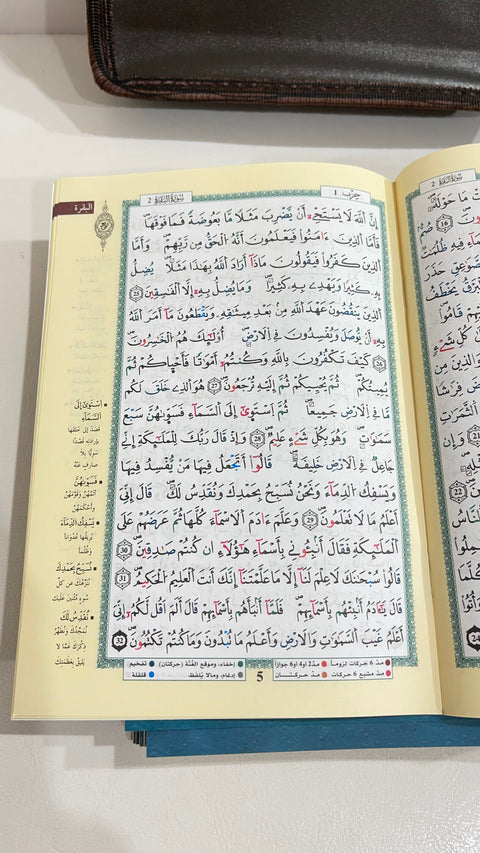 سُورَةُ البَقَرَة 2
حِزْب 1
البقرة
إِنَّ اَللَّهَ لَا يَسْتَحْيِۦٓ أَنْ يَّضْرِبَ مَثَلًا مَّا بَعُوضَةً فَمَا فَوْقَهَا
فَأَمَّا اَلذِينَ ءَامَنُوا فَيَعْلَمُونَ أَنَّهُ اُلْحَقُّ مِن رَّبِّهِمْ وَأَمَّا
اَلذِينَ كَفَرُوا فَيَقُولُونَ مَاذَآ أَرَادَ اَللَّهُ بِهَٰذَا مَثَلًا يُضِلُّ
بِهِۦ كَثِيرًا وَيَهْدِے بِهِۦ كَثِيرًا وَمَا يُضِلُّ بِهِۦٓ إِلَّا اَلْفَٰسِقِينَ 25
اَلذِينَ يَنقُضُونَ عَهْدَ اَللَّهِ مِنۢ بَعْدِ مِيثَٰقِهِۦ وَيَقْطَعُونَ مَآ أَمَرَ اَللَّهُ
بِهِۦٓ أَنْ يُّوصَلَ وَيُفْسِدُونَ فِے اِلَارْضِ أُوْلَٰٓئِكَ هُمُ اُلْخَٰسِرُونَ
26 كَيْفَ تَكْفُرُونَ بِاللَّهِ وَكُنتُمُۥٓ أَمْوَٰتًا فَأَحْيَٰكُمْ ثُمَّ
يُمِيتُكُمْ ثُمَّ يُحْيِيكُمْ ثُمَّ إِلَيْهِ تُرْجَعُونَ 27 هُوَ اَلذِے خَلَقَ لَكُم
مَّا فِے اِلَارْضِ جَمِيعًا ثُمَّ اَسْتَوَىٰٓ إِلَى اَلسَّمَآءِ فَسَوَّىٰهُنَّ سَبْعَ
سَمَٰوَٰتٍ وَهُوَ بِكُلِّ شَےْءٍ عَلِيمٌ 28 وَإِذْ قَالَ رَبُّكَ لِلْمَلَٰٓئِكَةِ إِنِّے
جَاعِلٌ فِے اِلَارْضِ خَلِيفَةً قَالُوٓا أَتَجْعَلُ فِيهَا مَنْ يُّفْسِدُ فِيهَا
وَيَسْفِكُ اُلدِّمَآءَ وَنَحْنُ نُسَبِّحُ بِحَمْدِكَ وَنُقَدِّسُ لَكَ قَالَ إِنِّيَ
أَعْلَمُ مَا لَا تَعْلَمُونَ 29 وَعَلَّمَ ءَادَمَ اَلَاسْمَآءَ كُلَّهَا ثُمَّ عَرَضَهُمْ عَلَى
اَلْمَلَٰٓئِكَةِ فَقَالَ أَنۢبِـُٔونِے بِأَسْمَآءِ هَٰٓؤُلَآءِ ان كُنتُمْ صَٰدِقِينَ 30
قَالُوا سُبْحَٰنَكَ لَا عِلْمَ لَنَآ إِلَّا مَا عَلَّمْتَنَآ إِنَّكَ أَنتَ اَلْعَلِيمُ اُلْحَكِيمُ 31
قَالَ يَٰٓـَٔادَمُ أَنۢبِئْهُم بِأَسْمَآئِهِمْ فَلَمَّآ أَنۢبَأَهُم بِأَسْمَآئِهِمْ قَالَ أَلَمَ اَقُل لَّكُمُۥٓ إِنِّيَ
أَعْلَمُ غَيْبَ اَلسَّمَٰوَٰتِ وَالَارْضِ وَأَعْلَمُ مَا تُبْدُونَ وَمَا كُنتُمْ تَكْتُمُونَ 32
اسْتَوَىٰ إِلَى
السَّمَآءِ
قصد إلى خلقها
بإرادته قصدًا
سويًّا بلا
صارف عنه
فَسَوَّىٰهُنَّ
أتمّهنّ وقوّمهنّ
وأحكمهنّ
يَسْفِكُ الدِّمَآءَ
يريقها عدوانًا
وظلمًا
نُسَبِّحُ بِحَمْدِكَ
ننزّهك عن كلّ
سوء مثنين عليك
نُقَدِّسُ لَكَ
نمجّدك ونطهّر
ذكرك عمّا لا
يليق بعظمتك
مدّ 6 حركات لزوماً مدّ 2 أو 4 أو 6 جوازاً إخفاء، وموقع الغُنَّة (حركتان) تفخيم
مدّ مشبع 6 حركات مدّ حركتان إدغام، ومالا يُلفَظ قلقلة
5
سُورَةُ البَقَرَة 2